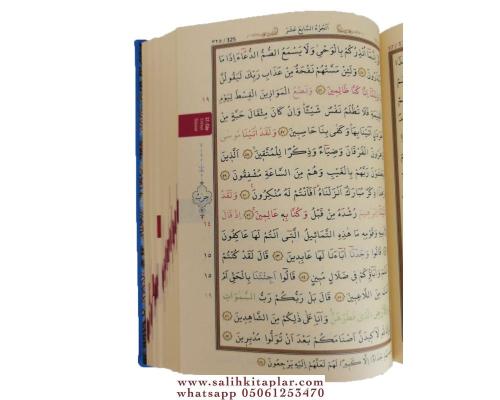 ٣٢٥ / 325 اَلْجُزْءُ السَّابِعَ عَشَرَ
اُنْذِرُكُمْ بِالْوَحْيِ وَلَا يَسْمَعُ الصُّمُّ الدُّعَٓاءَ اِذَا مَا
وَلَئِنْ مَسَّتْهُمْ نَفْحَةٌ مِنْ عَذَابِ رَبِّكَ لَيَقُولُنَّ
اِنَّا كُنَّا ظَالِمِينَ وَنَضَعُ الْمَوَازِينَ الْقِسْطَ لِيَوْمِ
فَلَا تُظْلَمُ نَفْسٌ شَيْـًٔا وَاِنْ كَانَ مِثْقَالَ حَبَّةٍ مِنْ
اَتَيْنَا بِهَا وَكَفٰى بِنَا حَاسِبِينَ وَلَقَدْ اٰتَيْنَا مُوسٰى
الْفُرْقَانَ وَضِيَٓاءً وَذِكْرًا لِلْمُتَّقِينَ اَلَّذِينَ
رَبَّهُمْ بِالْغَيْبِ وَهُمْ مِنَ السَّاعَةِ مُشْفِقُونَ
ذِكْرٌ مُبَارَكٌ اَنْزَلْنَاهُ اَفَاَنْتُمْ لَهُ مُنْكِرُونَ وَلَقَدْ
اِبْرٰهِيمَ رُشْدَهُ مِنْ قَبْلُ وَكُنَّا بِهِ عَالِمِينَ اِذْ قَالَ
وَقَوْمِهِ مَا هٰذِهِ التَّمَاثِيلُ الَّتِٓي اَنْتُمْ لَهَا عَاكِفُونَ
وَجَدْنَٓا اٰبَٓاءَنَا لَهَا عَابِدِينَ قَالَ لَقَدْ كُنْتُمْ
وَاٰبَٓاؤُكُمْ فِي ضَلَالٍ مُبِينٍ قَالُٓوا اَجِئْتَنَا بِالْحَقِّ اَمْ
مِنَ اللَّاعِبِينَ قَالَ بَلْ رَبُّكُمْ رَبُّ السَّمٰوَاتِ
الَّذِي فَطَرَهُنَّ وَاَنَا عَلٰى ذٰلِكُمْ مِنَ الشَّاهِدِينَ
لَاَكِيدَنَّ اَصْنَامَكُمْ بَعْدَ اَنْ تُوَلُّوا مُدْبِرِينَ
جُذَاذًا اِلَّا كَبِيرًا لَهُمْ لَعَلَّهُمْ اِلَيْهِ يَرْجِعُونَ
www.salihkitaplar.com
whatsapp 05061253470